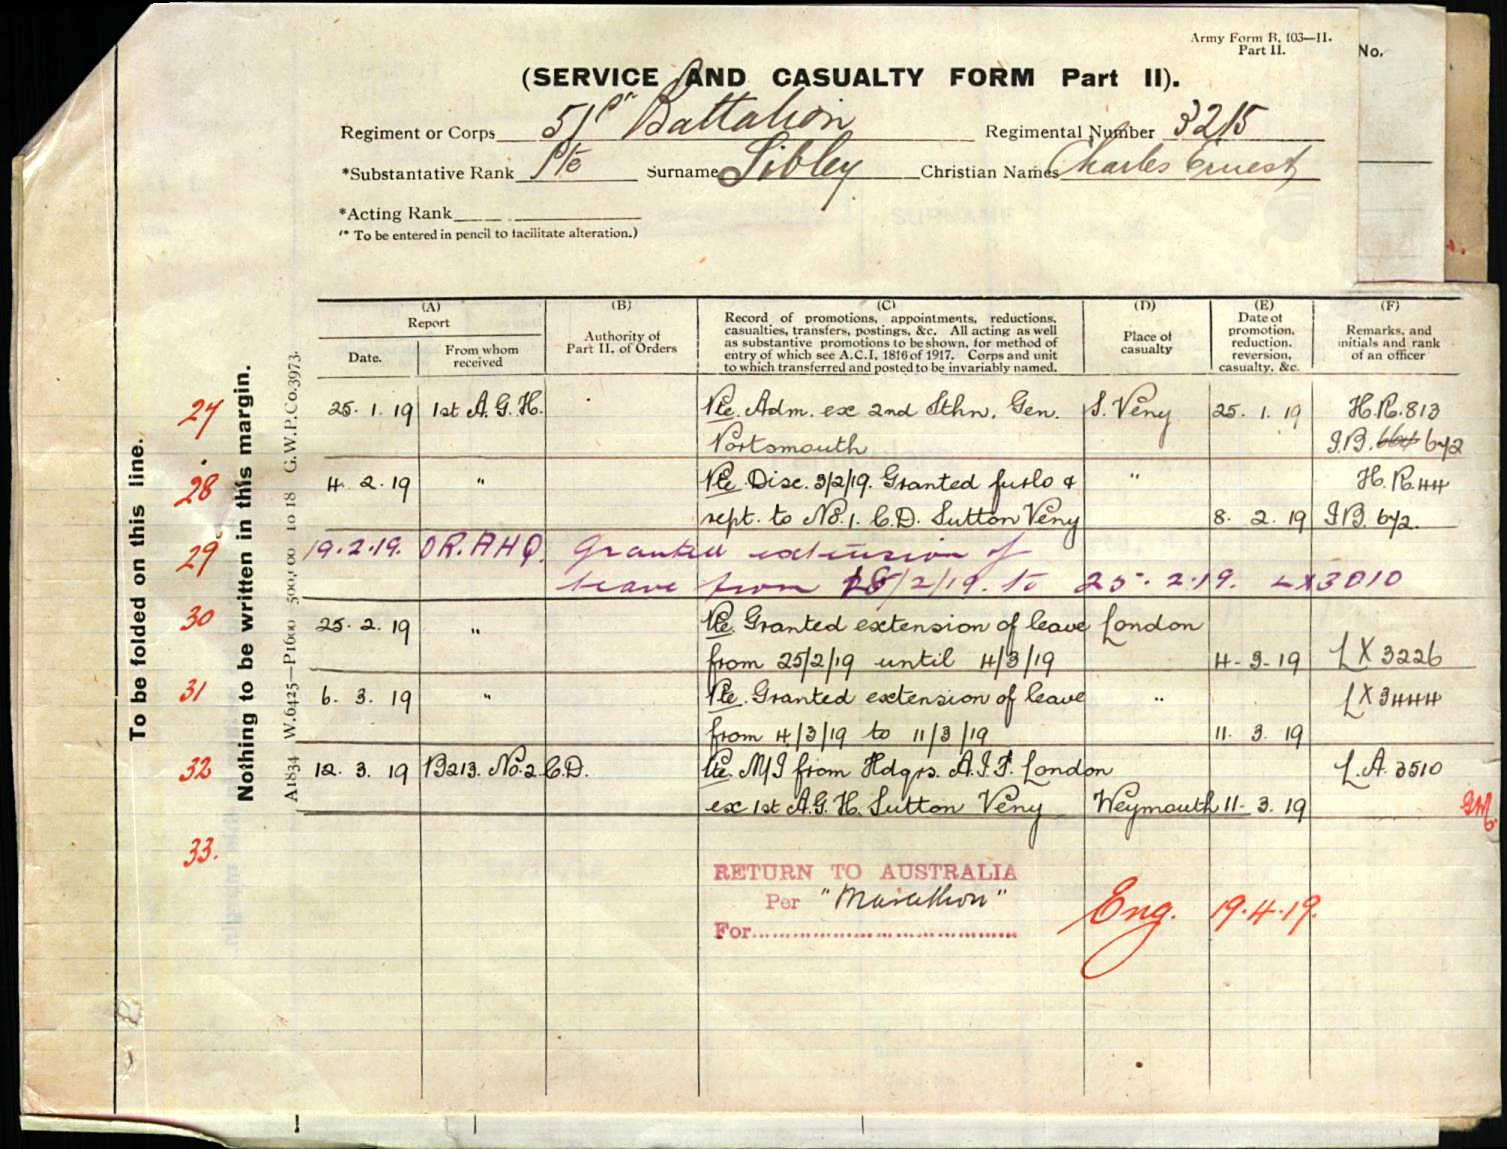 Army Form B. 103—II.
Part II.
No.
(SERVICE AND CASUALTY FORM Part II).
Regiment or Corps 51st Battalion Regimental Number 3215
*Substantative Rank Pte Surname Sibley Christian Names Charles Ernest
*Acting Rank
(* To be entered in pencil to facilitate alteration.)
(A)
Report
Date.
From whom received
(B)
Authority of
Part II. of Orders
(C)
Record of promotions, appointments, reductions,
casualties, transfers, postings, &c. All acting as well
as substantive promotions to be shown, for method of
entry of which see A.C.I. 1816 of 1917. Corps and unit
to which transferred and posted to be invariably named.
(D)
Place of
casualty
(E)
Date of
promotion,
reduction,
reversion,
casualty, &c.
(F)
Remarks, and
initials and rank
of an officer
27 25. 1. 19 1st A.G.H. Pte. Adm. ex 2nd Sthn. Gen. S. Veny 25. 1. 19 H.R. 813
Portsmouth I.B. 642
28 4. 2. 19 " Pte. Disc. 3/2/19. Granted furlo & " H.R. 44
rept. to No. 1. C.D. Sutton Veny 8. 2. 19 I.B. 672.
29 19.2.19. OR. AHQ. Granted extension of
leave from 18/2/19. to 25.2.19. LX3010
30 25. 2. 19 " Pte. Granted extension of leave London
from 25/2/19 until 4/3/19 4. 3. 19 LX 3226
31 6. 3. 19 " Pte. Granted extension of leave " LX 3444
from 4/3/19 to 11/3/19 11. 3. 19
32 12. 3. 19 B213. No. 2 C.D. Pte. M/I from Hdqrs. A.I.F. London L.A. 3510
ex 1st A.G.H. Sutton Veny Weymouth 11. 3. 19
33.
RETURN TO AUSTRALIA
Per "Marathon" Eng. 19.4.19.
For
To be folded on this line.
Nothing to be written in this margin.
A1834 W.6425—P1600 500,000 10 18 G.W.P.Co.3973.